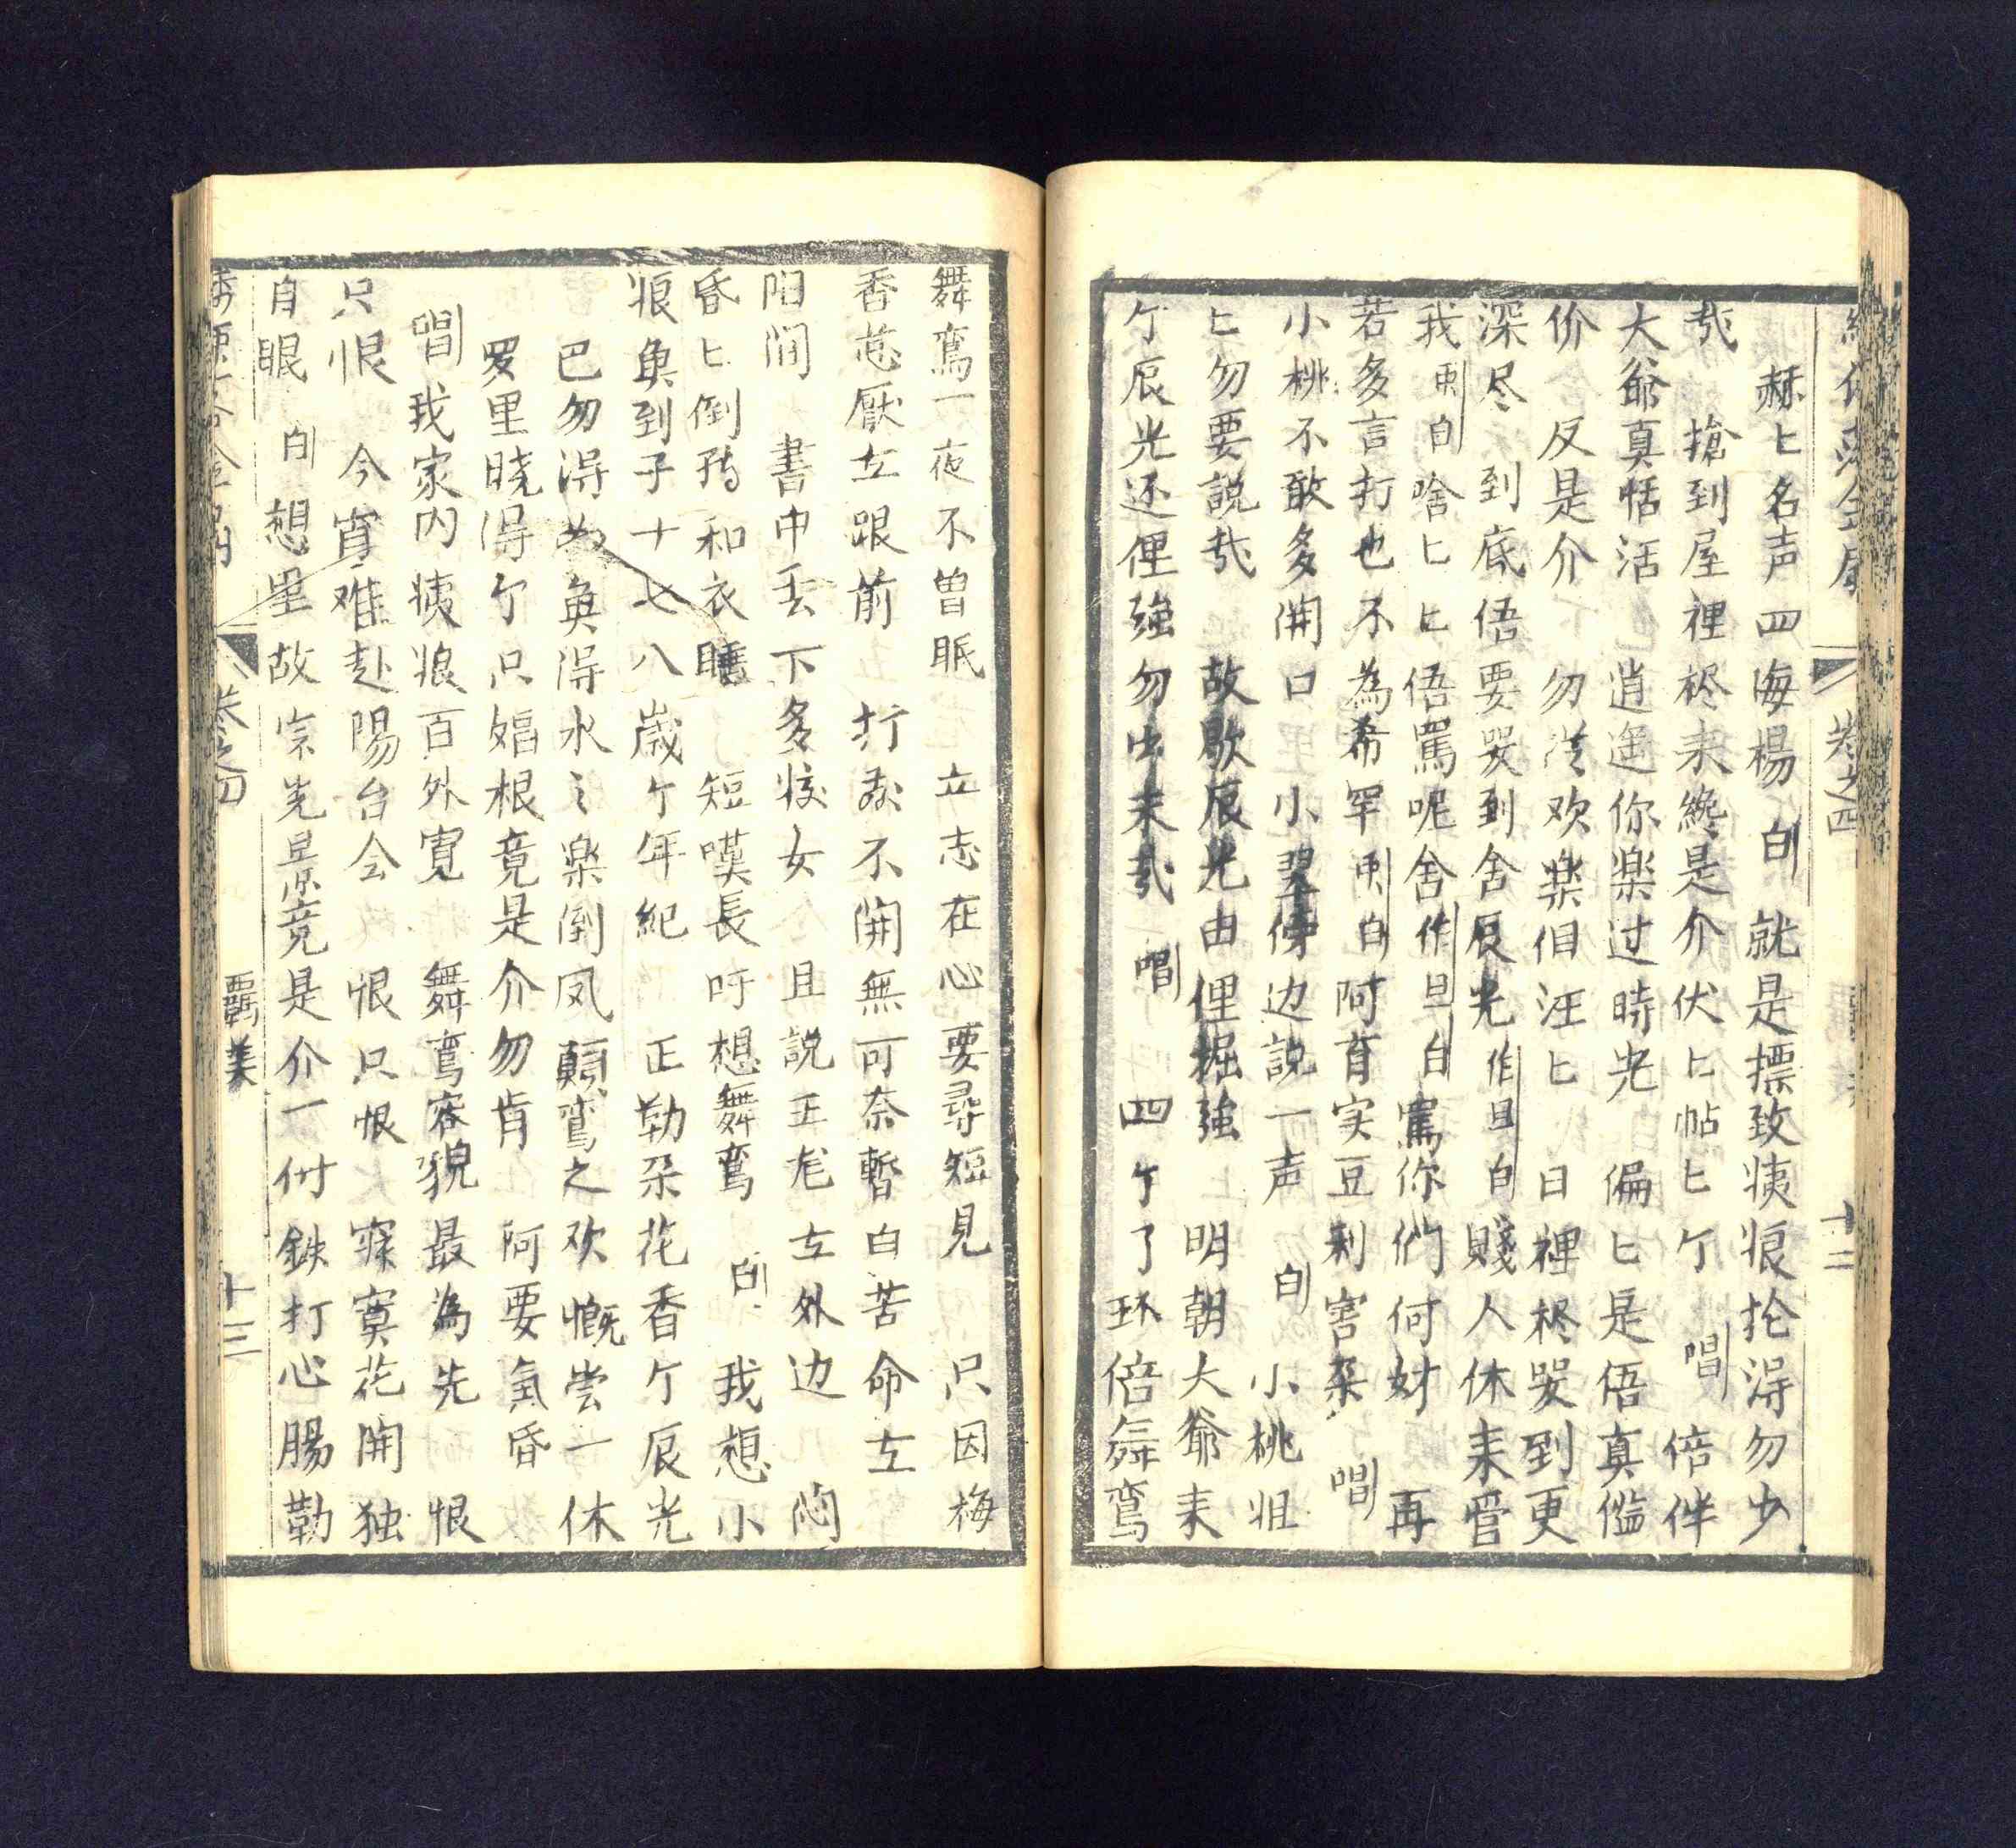 卷之四 十二
赫匕名声四海楊 白 就是摽致㺊狼抢淂勿少
㢤 搶到屋裡终未終是介伏匕帖匕个 唱 倍伴
大爺真恬活 逍遥你楽过時光 偏匕是偣真尴
价 反是介 勿 欢楽佀汪匕 日裡终哭到更
深尽 到底偣要哭到舍辰光 作旦白 賤人休耒管
我 更白 啥匕匕偣罵呢舍 作旦白 罵你們何妨 再
若多言打也不為希罕 更白 阿育实豆刺害杂 唱
小桃不敢多開口 小翠傍边説一声 白 小桃姐
匕勿要説㢤 故歇辰光由俚掘強 明朝大爺耒
个辰光还俚強勿出耒㢤 唱 四个了环倍舜鸾
舞鸞一夜不曾眠 立志在心要尋短見 只因梅
香惹厭左跟前 打敲不開無可奈暫白苦命左
阳间 書中丢下多姣女 且説正厐左外边 闷
昏匕倒转和衣睡 短嘆長吁想舞鸾 白 我想小
狼奂到子十七八歲个年紀 正勒朵花香个辰光
巴勿淂如奂淂水之楽倒凤顛鸞之欢慨尝一休
罗里晓淂个只娼根竟是介勿肯 阿要氣昏
唱 我家内㺊狼百外寛 舞鸾容貌最為先 恨
只恨 今宵难赴陽台会 恨只恨 寂寞花開独
自眠 白 想里故宗光景竟是介一付鉄打心腸勒
卷之四 覇美 十三